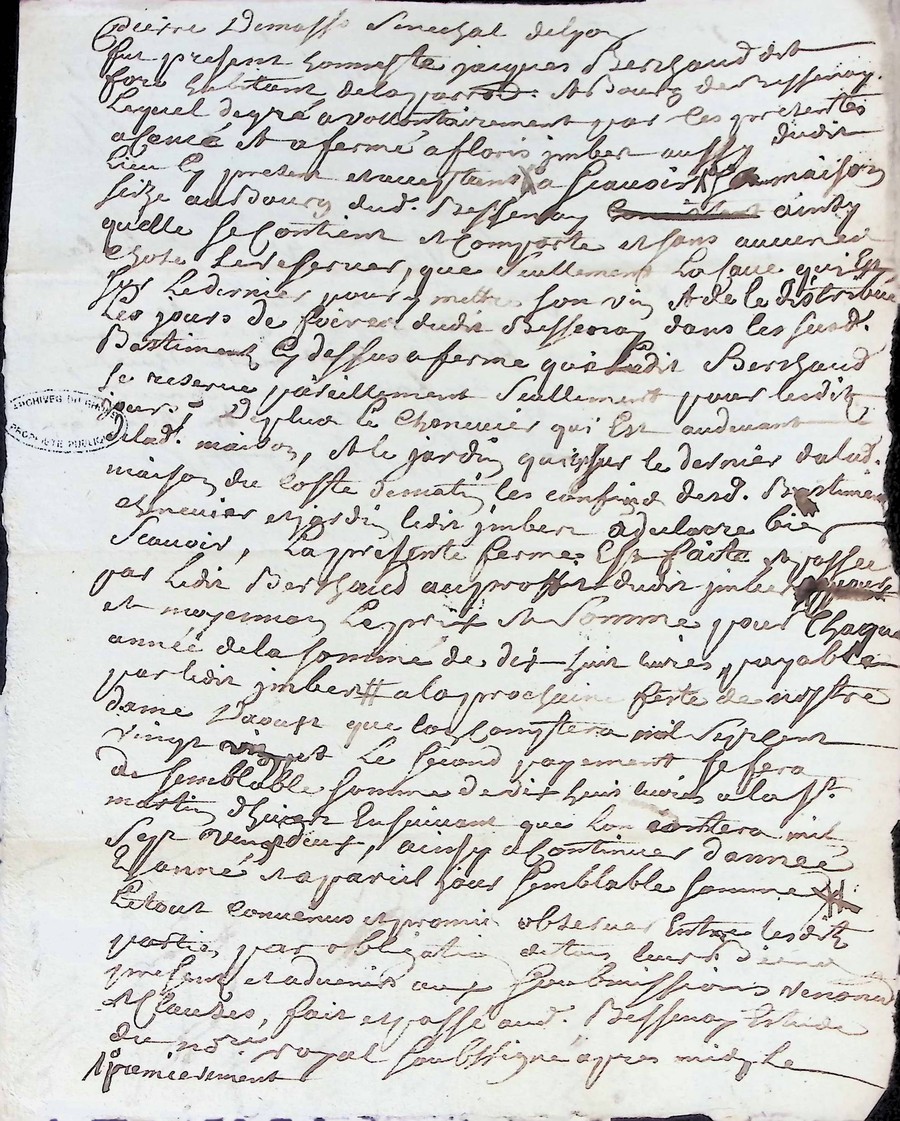 pierre Demasso Senechal de lyon
fut present honneste jacques Berthaud dit
fore habitant dela parroisse et Bourg de Bessenay.
Lequel de gré a vollontairement par les presentes
aloué et affermé a floris jmbert aussy dudit
lieu cy present et acceptant a scavoir sa maison
size au Bourg dud. Bessenay ainsy
quelle se Contient et Comporte et sans aucune
Chose se reserver, que seullement La cave qui Est
sur Le dernier pour y mettre son vin et de le distribué
Les jours de foires dudit Bessenay dans les susd.
Bastiment cy dessus afermé que Ledit Berthaud
se reserve pareillement seullement pour lesdits
jours de plus le chenevier qui Est audevant
delad. maison, et le jardin qui est sur le dernier de lad.
maison du Costé de matin les confins desd. Bastiment
chenevier et jardin ledit jmbert a declare bien
Scavoir, La presente ferme Est faite et passée
par Ledit Berthaud au proffit dudit jmbert
et moyennant Le prix et Somme pour Chaque
année de la somme de dix huit livres, payable
par ledit jmbert a la prochaine feste de nostre
dame Daoust que lon Comptera mil Sept cent
vingt Le second payement se fera
de semblable somme de dix huit livres a la St.
martin dhiver Ensuivant que lon contera mil
Sept vingt deux, ainsy a Continuer d'année
En année et a pareil jour semblable somme
Le tout Convenus et promis observer Entre lesdits
parties par obligation de tous leurs biens
presents et advenir aux soubmissions renond
et Clauses, fait et passé aud. Bessenay Estude
du nore royal soubssigné apres midy Le
premierement
ARCHIVES DU RHÔNE
PROPRIÉTÉ PUBLIQUE